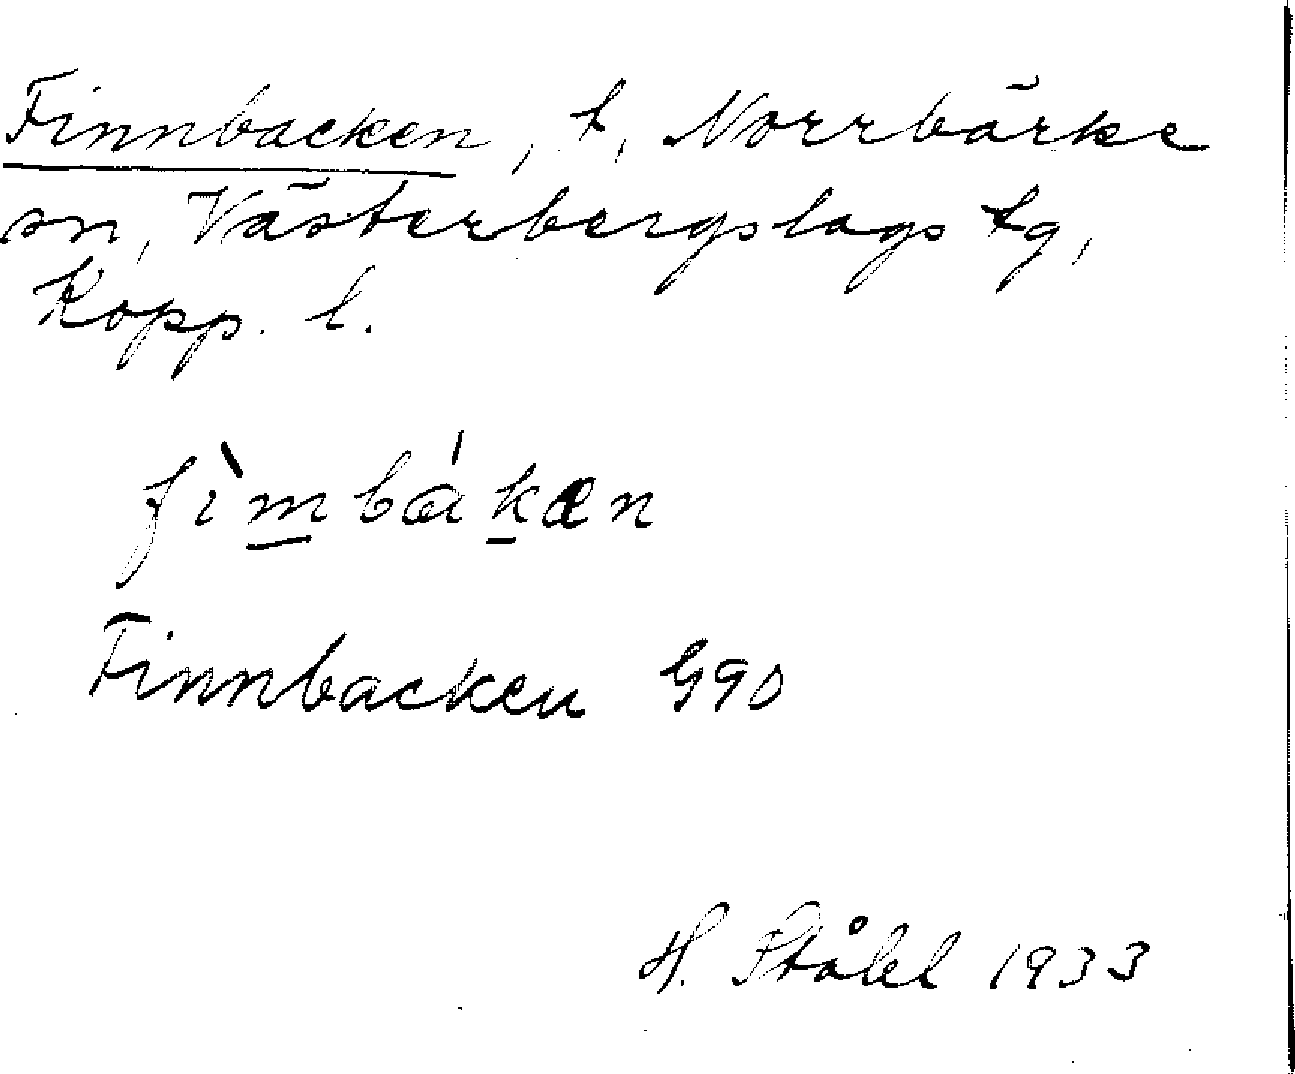 Finnbacken, t, Norrbärke
sn, Västerbergslags tg,
Kopp. l.
fìmbákæn
Finnbacken G90
H. Ståhl 1933